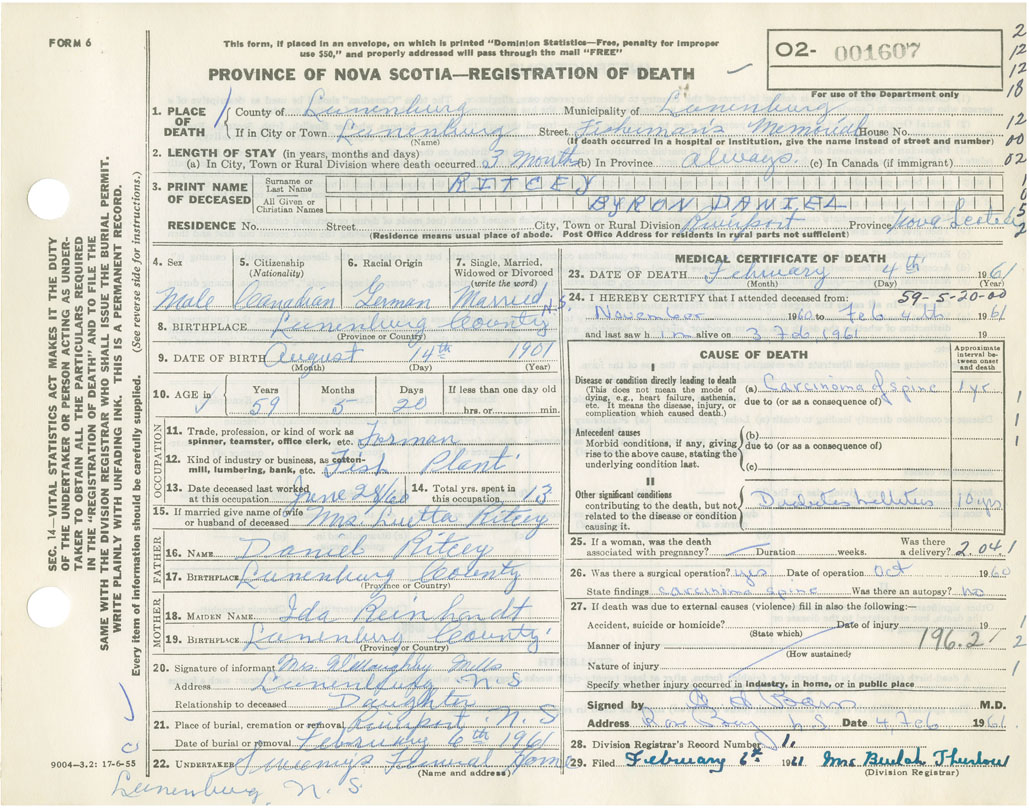 FORM 6
This form, if placed in an envelope, on which is printed "Dominion Statistics—Free, penalty for improper
use $50," and properly addressed will pass through the mail "FREE"
PROVINCE OF NOVA SCOTIA—REGISTRATION OF DEATH
02- 001607
For use of the Department only
2
12
12
18
12
00
02
1. PLACE OF DEATH
County of Lunenburg Municipality of Lunenburg
If in City or Town Lunenburg Street Fisherman's Memorial House No.
(Name) (If death occurred in a hospital or institution, give the name instead of street and number)
2. LENGTH OF STAY (in years, months and days)
(a) In City, Town or Rural Division where death occurred 3 Months (b) In Province always. (c) In Canada (if immigrant)
3. PRINT NAME OF DECEASED
Surname or Last Name RITCEY
All Given or Christian Names BYRON DANIEL
RESIDENCE No. Street City, Town or Rural Division Riverport Province Nova Scotia
(Residence means usual place of abode. Post Office Address for residents in rural parts not sufficient)
4. Sex Male
5. Citizenship (Nationality) Canadian
6. Racial Origin German
7. Single, Married, Widowed or Divorced (write the word) Married
8. BIRTHPLACE Lunenburg County N.S.
(Province or Country)
9. DATE OF BIRTH August 14th 1901
(Month) (Day) (Year)
10. AGE in Years 59 Months 5 Days 20 If less than one day old hrs. or min.
OCCUPATION
11. Trade, profession, or kind of work as spinner, teamster, office clerk, etc. Forman
12. Kind of industry or business, as cotton-mill, lumbering, bank, etc. Fish Plant
13. Date deceased last worked at this occupation June 28/60 14. Total yrs. spent in this occupation 13
15. If married give name of wife or husband of deceased Mrs. Lutta Ritcey
FATHER
16. NAME Daniel Ritcey
17. BIRTHPLACE Lunenburg County
(Province or Country)
MOTHER
18. MAIDEN NAME Ida Reinhardt
19. BIRTHPLACE Lunenburg County
(Province or Country)
20. Signature of informant Mrs. Willoughby Mills
Address Lunenburg N S
Relationship to deceased Daughter
21. Place of burial, cremation or removal Riverport N. S
Date of burial or removal February 6th 1961
22. UNDERTAKER Sweeny's Funeral Home
(Name and address)
9004—3.2: 17-6-55
Lunenburg N. S.
MEDICAL CERTIFICATE OF DEATH
23. DATE OF DEATH February 4th 1961
(Month) (Day) (Year)
24. I HEREBY CERTIFY that I attended deceased from: 59-5-20-00
November 1960 to Feb 4th 1961
and last saw him alive on 3 Feb 1961 19
CAUSE OF DEATH
Approximate interval between onset and death
I
Disease or condition directly leading to death
(This does not mean the mode of dying, e.g., heart failure, asthenia, etc. It means the disease, injury, or complication which caused death.)
(a) Carcinoma of spine 1 yr.
due to (or as a consequence of)
Antecedent causes
Morbid conditions, if any, giving rise to the above cause, stating the underlying condition last.
(b)
due to (or as a consequence of)
(c)
II
Other significant conditions
contributing to the death, but not related to the disease or condition causing it.
Diabetes Mellitus 10 yrs
25. If a woman, was the death associated with pregnancy? Duration weeks. Was there a delivery? 2.041
26. Was there a surgical operation? yes Date of operation Oct 1960
State findings carcinoma spine Was there an autopsy? no
27. If death was due to external causes (violence) fill in also the following:—
Accident, suicide or homicide? Date of injury 19
(State which)
Manner of injury 196.2
(How sustained)
Nature of injury
Specify whether injury occurred in industry, in home, or in public place
Signed by M.D.
Address Rose Bay N.S. Date 4 Feb 1961
28. Division Registrar's Record Number 1.
29. Filed February 6th 1961 Mrs Beulah Thurlow
(Division Registrar)
SEC. 14—VITAL STATISTICS ACT MAKES IT THE DUTY
OF THE UNDERTAKER OR PERSON ACTING AS UNDER-
TAKER TO OBTAIN ALL THE PARTICULARS REQUIRED
IN THE "REGISTRATION OF DEATH" AND TO FILE THE
SAME WITH THE DIVISION REGISTRAR WHO SHALL ISSUE THE BURIAL PERMIT.
WRITE PLAINLY WITH UNFADING INK. THIS IS A PERMANENT RECORD.
Every item of information should be carefully supplied. (See reverse side for instructions.)